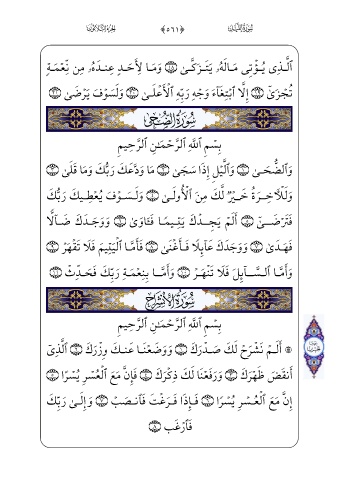 سُورَةُ اللَّيْلِ ﴿٥٦١﴾ الجزء الثلاثون
ٱلَّذِى يُؤْتِى مَالَهُۥ يَتَزَكَّىٰ ۝ وَمَا لِأَحَدٍ عِندَهُۥ مِن نِّعْمَةٍ
تُجْزَىٰٓ ۝ إِلَّا ٱبْتِغَآءَ وَجْهِ رَبِّهِ ٱلْأَعْلَىٰ ۝ وَلَسَوْفَ يَرْضَىٰ ۝
سُورَةُ الضُّحَىٰ
بِسْمِ ٱللَّهِ ٱلرَّحْمَـٰنِ ٱلرَّحِيمِ
وَٱلضُّحَىٰ ۝ وَٱلَّيْلِ إِذَا سَجَىٰ ۝ مَا وَدَّعَكَ رَبُّكَ وَمَا قَلَىٰ ۝
وَلَلْأَخِرَةُ خَيْرٌ لَّكَ مِنَ ٱلْأُولَىٰ ۝ وَلَسَوْفَ يُعْطِيكَ رَبُّكَ
فَتَرْضَىٰٓ ۝ أَلَمْ يَجِدْكَ يَتِيمًا فَـَٔاوَىٰ ۝ وَوَجَدَكَ ضَآلًّا
فَهَدَىٰ ۝ وَوَجَدَكَ عَآئِلًا فَأَغْنَىٰ ۝ فَأَمَّا ٱلْيَتِيمَ فَلَا تَقْهَرْ ۝
وَأَمَّا ٱلسَّآئِلَ فَلَا تَنْهَرْ ۝ وَأَمَّا بِنِعْمَةِ رَبِّكَ فَحَدِّثْ ۝
سُورَةُ الْإِنْشِرَاحِ
بِسْمِ ٱللَّهِ ٱلرَّحْمَـٰنِ ٱلرَّحِيمِ
۞ أَلَمْ نَشْرَحْ لَكَ صَدْرَكَ ۝ وَوَضَعْنَا عَنكَ وِزْرَكَ ۝ ٱلَّذِىٓ
أَنقَضَ ظَهْرَكَ ۝ وَرَفَعْنَا لَكَ ذِكْرَكَ ۝ فَإِنَّ مَعَ ٱلْعُسْرِ يُسْرًا ۝
إِنَّ مَعَ ٱلْعُسْرِ يُسْرًا ۝ فَإِذَا فَرَغْتَ فَٱنصَبْ ۝ وَإِلَىٰ رَبِّكَ
فَٱرْغَب ۝